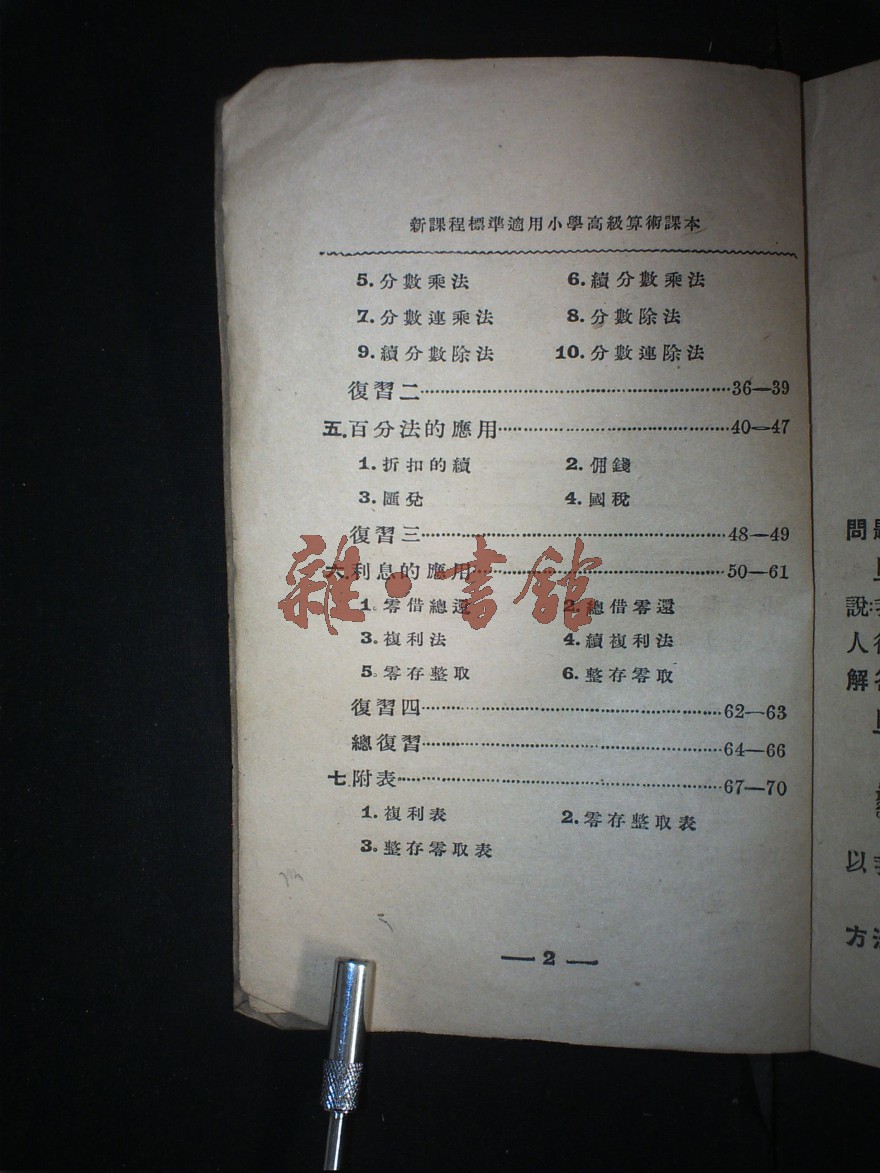 新課程標準適用小學高級算術課本
5. 分數乘法 6. 續分數乘法
7. 分數連乘法 8. 分數除法
9. 續分數除法 10. 分數連除法
復習二 36—39
五. 百分法的應用 40—47
1. 折扣的續 2. 佣錢
3. 匯兌 4. 國稅
復習三 48—49
六. 利息的應用 50—61
1. 零借總還 2. 總借零還
3. 複利法 4. 續複利法
5. 零存整取 6. 整存零取
復習四 62—63
總復習 64—66
七. 附表 67—70
1. 複利表 2. 零存整取表
3. 整存零取表
— 2 —
雜·書館
問
說:
人
解
以
方